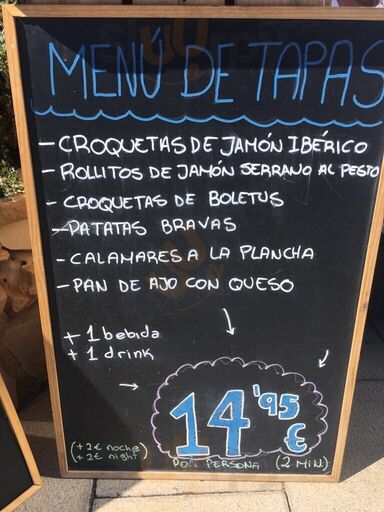 MENÚ DE TAPAS
- CROQUETAS DE JAMÓN IBÉRICO
- ROLLITOS DE JAMÓN SERRANO AL PESTO
- CROQUETAS DE BOLETUS
- PATATAS BRAVAS
- CALAMARES A LA PLANCHA
- PAN DE AJO CON QUESO
+ 1 bebida
+ 1 drink
14'95 €
(+2€ noche)
(+2€ night)
POR PERSONA (2 MIN)